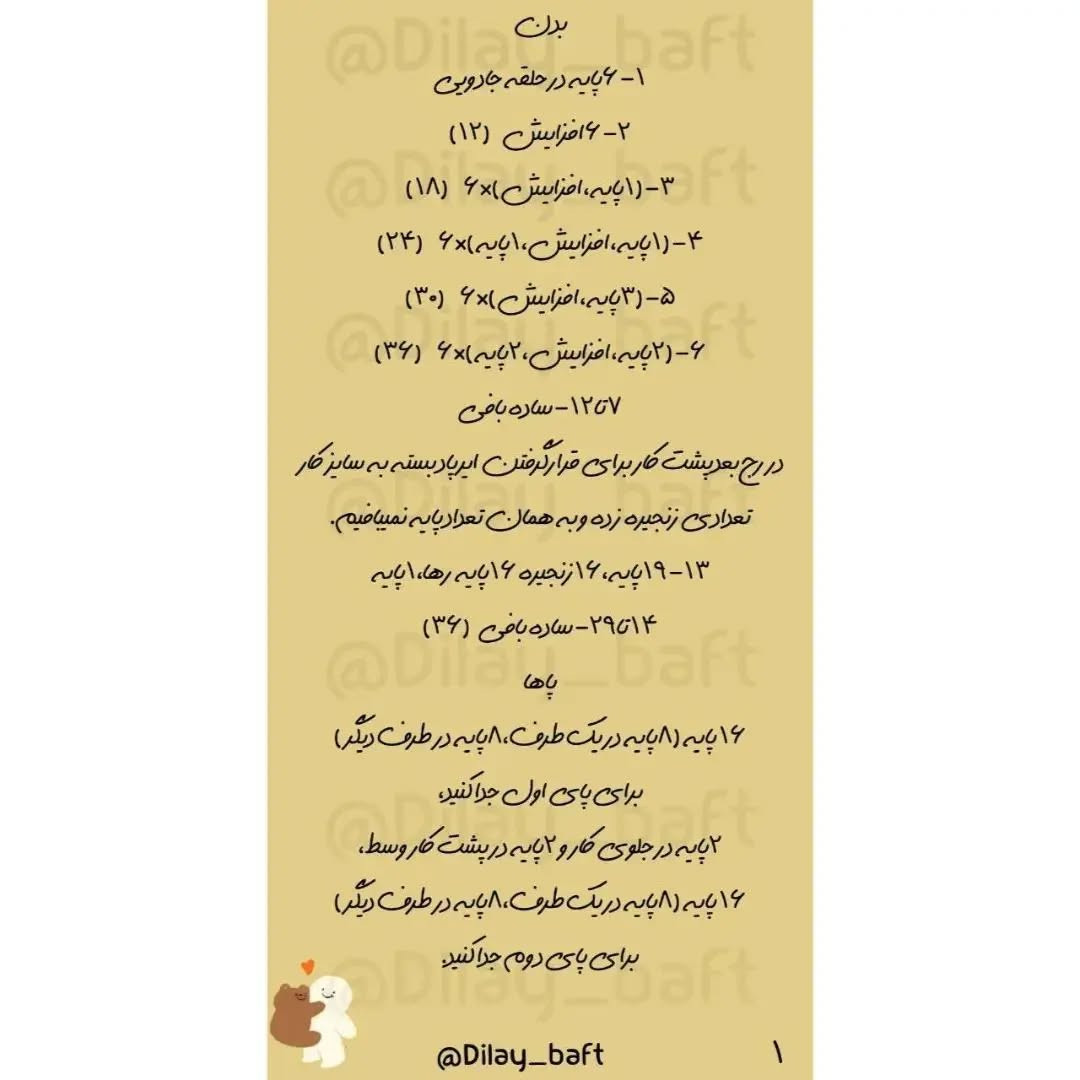 بدن
۱- ۶پایه در حلقه جادویی
۲- ۶افزایش (۱۲)
۳-(۱پایه،افزایش)×۶ (۱۸)
۴-(۱پایه،افزایش،۱پایه)×۶ (۲۴)
۵-(۳پایه،افزایش)×۶ (۳۰)
۶-(۲پایه،افزایش،۲پایه)×۶ (۳۶)
۷تا۱۲-ساده بافی
در رج بعد پشت کار برای قرارگرفتن ایرپاد بسته به سایز کار
تعدادی زنجیره زده و به همان تعداد پایه نمیبافیم.
۱۳-۱۹پایه،۱۶زنجیره ۱۶پایه رها،۱پایه
۱۴تا۲۹-ساده بافی (۳۶)
پاها
۱۶پایه (۸پایه در یک طرف،۸پایه در طرف دیگر)
برای پای اول جداکنید،
۲پایه در جلوی کار و ۲پایه در پشت کار وسط،
۱۶پایه (۸پایه در یک طرف،۸پایه در طرف دیگر)
برای پای دوم جداکنید.
@Dilay_baft
۱